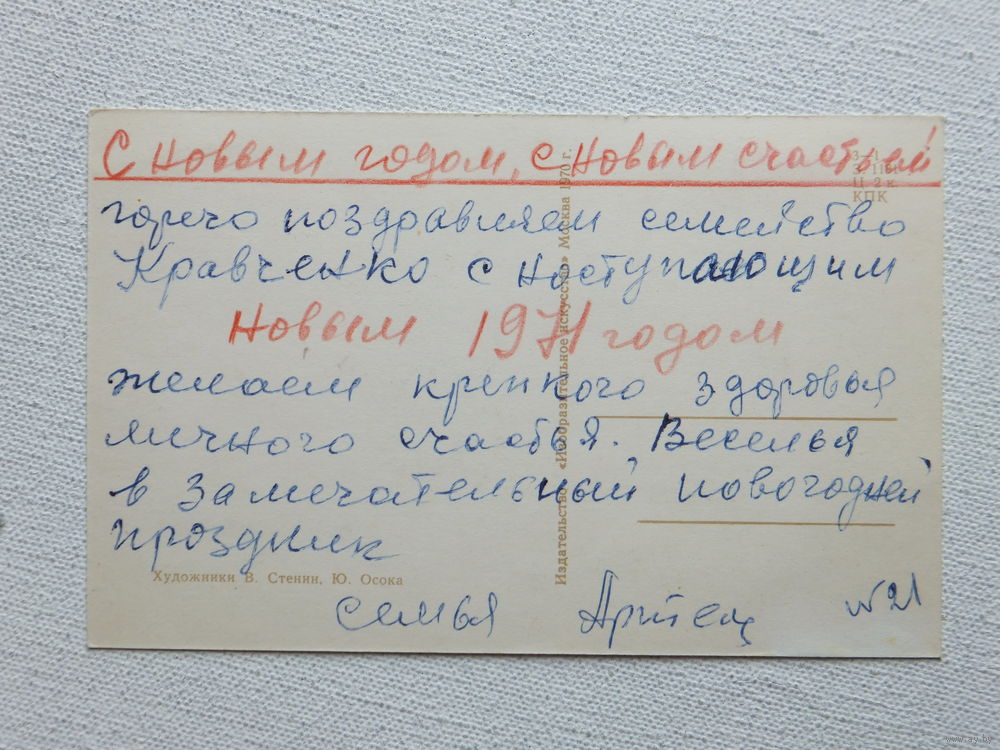 С Новым годом, с новым счастьем
горечо поздравляем семейство
Кравченко с наступающим
Новым 1971 годом
желаем крепкого здоровья
личного счастья. Веселья
в замечательный новогодней
праздник
Художники В. Стенин, Ю. Осока
семья
№21
Издательство «Изобразительное искусство» Москва 1970 г.
Ц 2 к.
КПК
www.ay.by